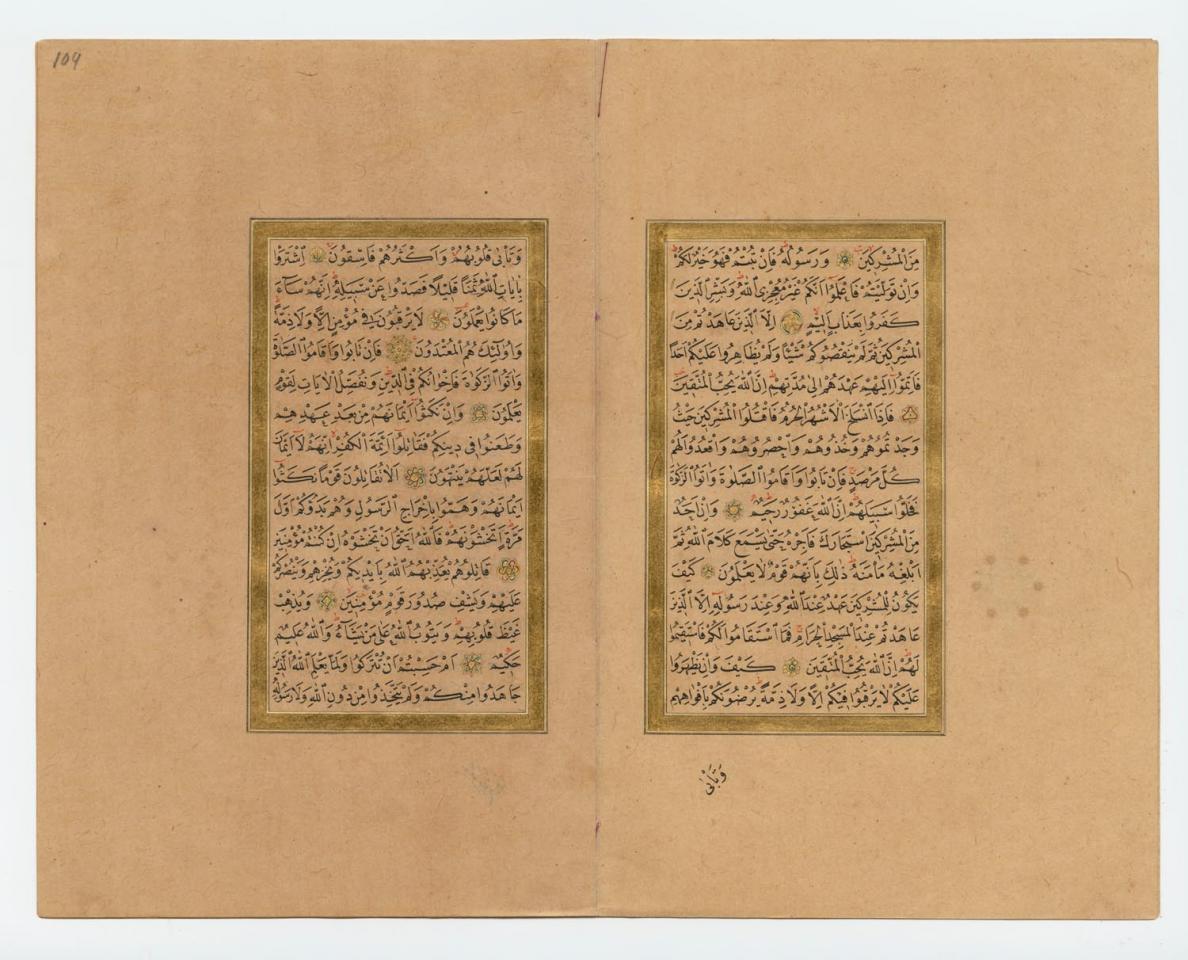 109
مِنَ الْمُشْرِكِينَ وَرَسُولُهُ فَإِنْ تُبْتُمْ فَهُوَ خَيْرٌ لَكُمْ
وَاِنْ تَوَلَّيْتُمْ فَاعْلَمُوا اَنَّكُمْ غَيْرُ مُعْجِزِي اللّٰهِ وَبَشِّرِ الَّذِينَ
كَفَرُوا بِعَذَابٍ اَلِيمٍ اِلَّا الَّذِينَ عَاهَدْتُمْ مِنَ
الْمُشْرِكِينَ ثُمَّ لَمْ يَنْقُصُوكُمْ شَيْئًا وَلَمْ يُظَاهِرُوا عَلَيْكُمْ اَحَدًا
فَاَتِمُّوا اِلَيْهِمْ عَهْدَهُمْ اِلٰى مُدَّتِهِمْ اِنَّ اللّٰهَ يُحِبُّ الْمُتَّقِينَ
فَاِذَا انْسَلَخَ الْاَشْهُرُ الْحُرُمُ فَاقْتُلُوا الْمُشْرِكِينَ حَيْثُ
وَجَدْتُمُوهُمْ وَخُذُوهُمْ وَاحْصُرُوهُمْ وَاقْعُدُوا لَهُمْ
كُلَّ مَرْصَدٍ فَاِنْ تَابُوا وَاَقَامُوا الصَّلٰوةَ وَاٰتَوُا الزَّكٰوةَ
فَخَلُّوا سَبِيلَهُمْ اِنَّ اللّٰهَ غَفُورٌ رَحِيمٌ وَاِنْ اَحَدٌ
مِنَ الْمُشْرِكِينَ اسْتَجَارَكَ فَاَجِرْهُ حَتّٰى يَسْمَعَ كَلَامَ اللّٰهِ ثُمَّ
اَبْلِغْهُ مَأْمَنَهُ ذٰلِكَ بِاَنَّهُمْ قَوْمٌ لَا يَعْلَمُونَ كَيْفَ
يَكُونُ لِلْمُشْرِكِينَ عَهْدٌ عِنْدَ اللّٰهِ وَعِنْدَ رَسُولِهِ اِلَّا الَّذِينَ
عَاهَدْتُمْ عِنْدَ الْمَسْجِدِ الْحَرَامِ فَمَا اسْتَقَامُوا لَكُمْ فَاسْتَقِيمُوا
لَهُمْ اِنَّ اللّٰهَ يُحِبُّ الْمُتَّقِينَ كَيْفَ وَاِنْ يَظْهَرُوا
عَلَيْكُمْ لَا يَرْقُبُوا فِيكُمْ اِلًّا وَلَا ذِمَّةً يُرْضُونَكُمْ بِاَفْوَاهِهِمْ
وَتَأْبٰى
وَتَأْبٰى قُلُوبُهُمْ وَاَكْثَرُهُمْ فَاسِقُونَ اِشْتَرَوْا
بِاٰيَاتِ اللّٰهِ ثَمَنًا قَلِيلًا فَصَدُّوا عَنْ سَبِيلِهِ اِنَّهُمْ سَاءَ
مَا كَانُوا يَعْمَلُونَ لَا يَرْقُبُونَ فِي مُؤْمِنٍ اِلًّا وَلَا ذِمَّةً
وَاُولٰئِكَ هُمُ الْمُعْتَدُونَ فَاِنْ تَابُوا وَاَقَامُوا الصَّلٰوةَ
وَاٰتَوُا الزَّكٰوةَ فَاِخْوَانُكُمْ فِي الدِّينِ وَنُفَصِّلُ الْاٰيَاتِ لِقَوْمٍ
يَعْلَمُونَ وَاِنْ نَكَثُوا اَيْمَانَهُمْ مِنْ بَعْدِ عَهْدِهِمْ
وَطَعَنُوا فِي دِينِكُمْ فَقَاتِلُوا اَئِمَّةَ الْكُفْرِ اِنَّهُمْ لَا اَيْمَانَ
لَهُمْ لَعَلَّهُمْ يَنْتَهُونَ اَلَا تُقَاتِلُونَ قَوْمًا نَكَثُوا
اَيْمَانَهُمْ وَهَمُّوا بِاِخْرَاجِ الرَّسُولِ وَهُمْ بَدَؤُكُمْ اَوَّلَ
مَرَّةٍ اَتَخْشَوْنَهُمْ فَاللّٰهُ اَحَقُّ اَنْ تَخْشَوْهُ اِنْ كُنْتُمْ مُؤْمِنِينَ
قَاتِلُوهُمْ يُعَذِّبْهُمُ اللّٰهُ بِاَيْدِيكُمْ وَيُخْزِهِمْ وَيَنْصُرْكُمْ
عَلَيْهِمْ وَيَشْفِ صُدُورَ قَوْمٍ مُؤْمِنِينَ وَيُذْهِبْ
غَيْظَ قُلُوبِهِمْ وَيَتُوبُ اللّٰهُ عَلٰى مَنْ يَشَاءُ وَاللّٰهُ عَلِيمٌ
حَكِيمٌ اَمْ حَسِبْتُمْ اَنْ تُتْرَكُوا وَلَمَّا يَعْلَمِ اللّٰهُ الَّذِينَ
جَاهَدُوا مِنْكُمْ وَلَمْ يَتَّخِذُوا مِنْ دُونِ اللّٰهِ وَلَا رَسُولِهِ